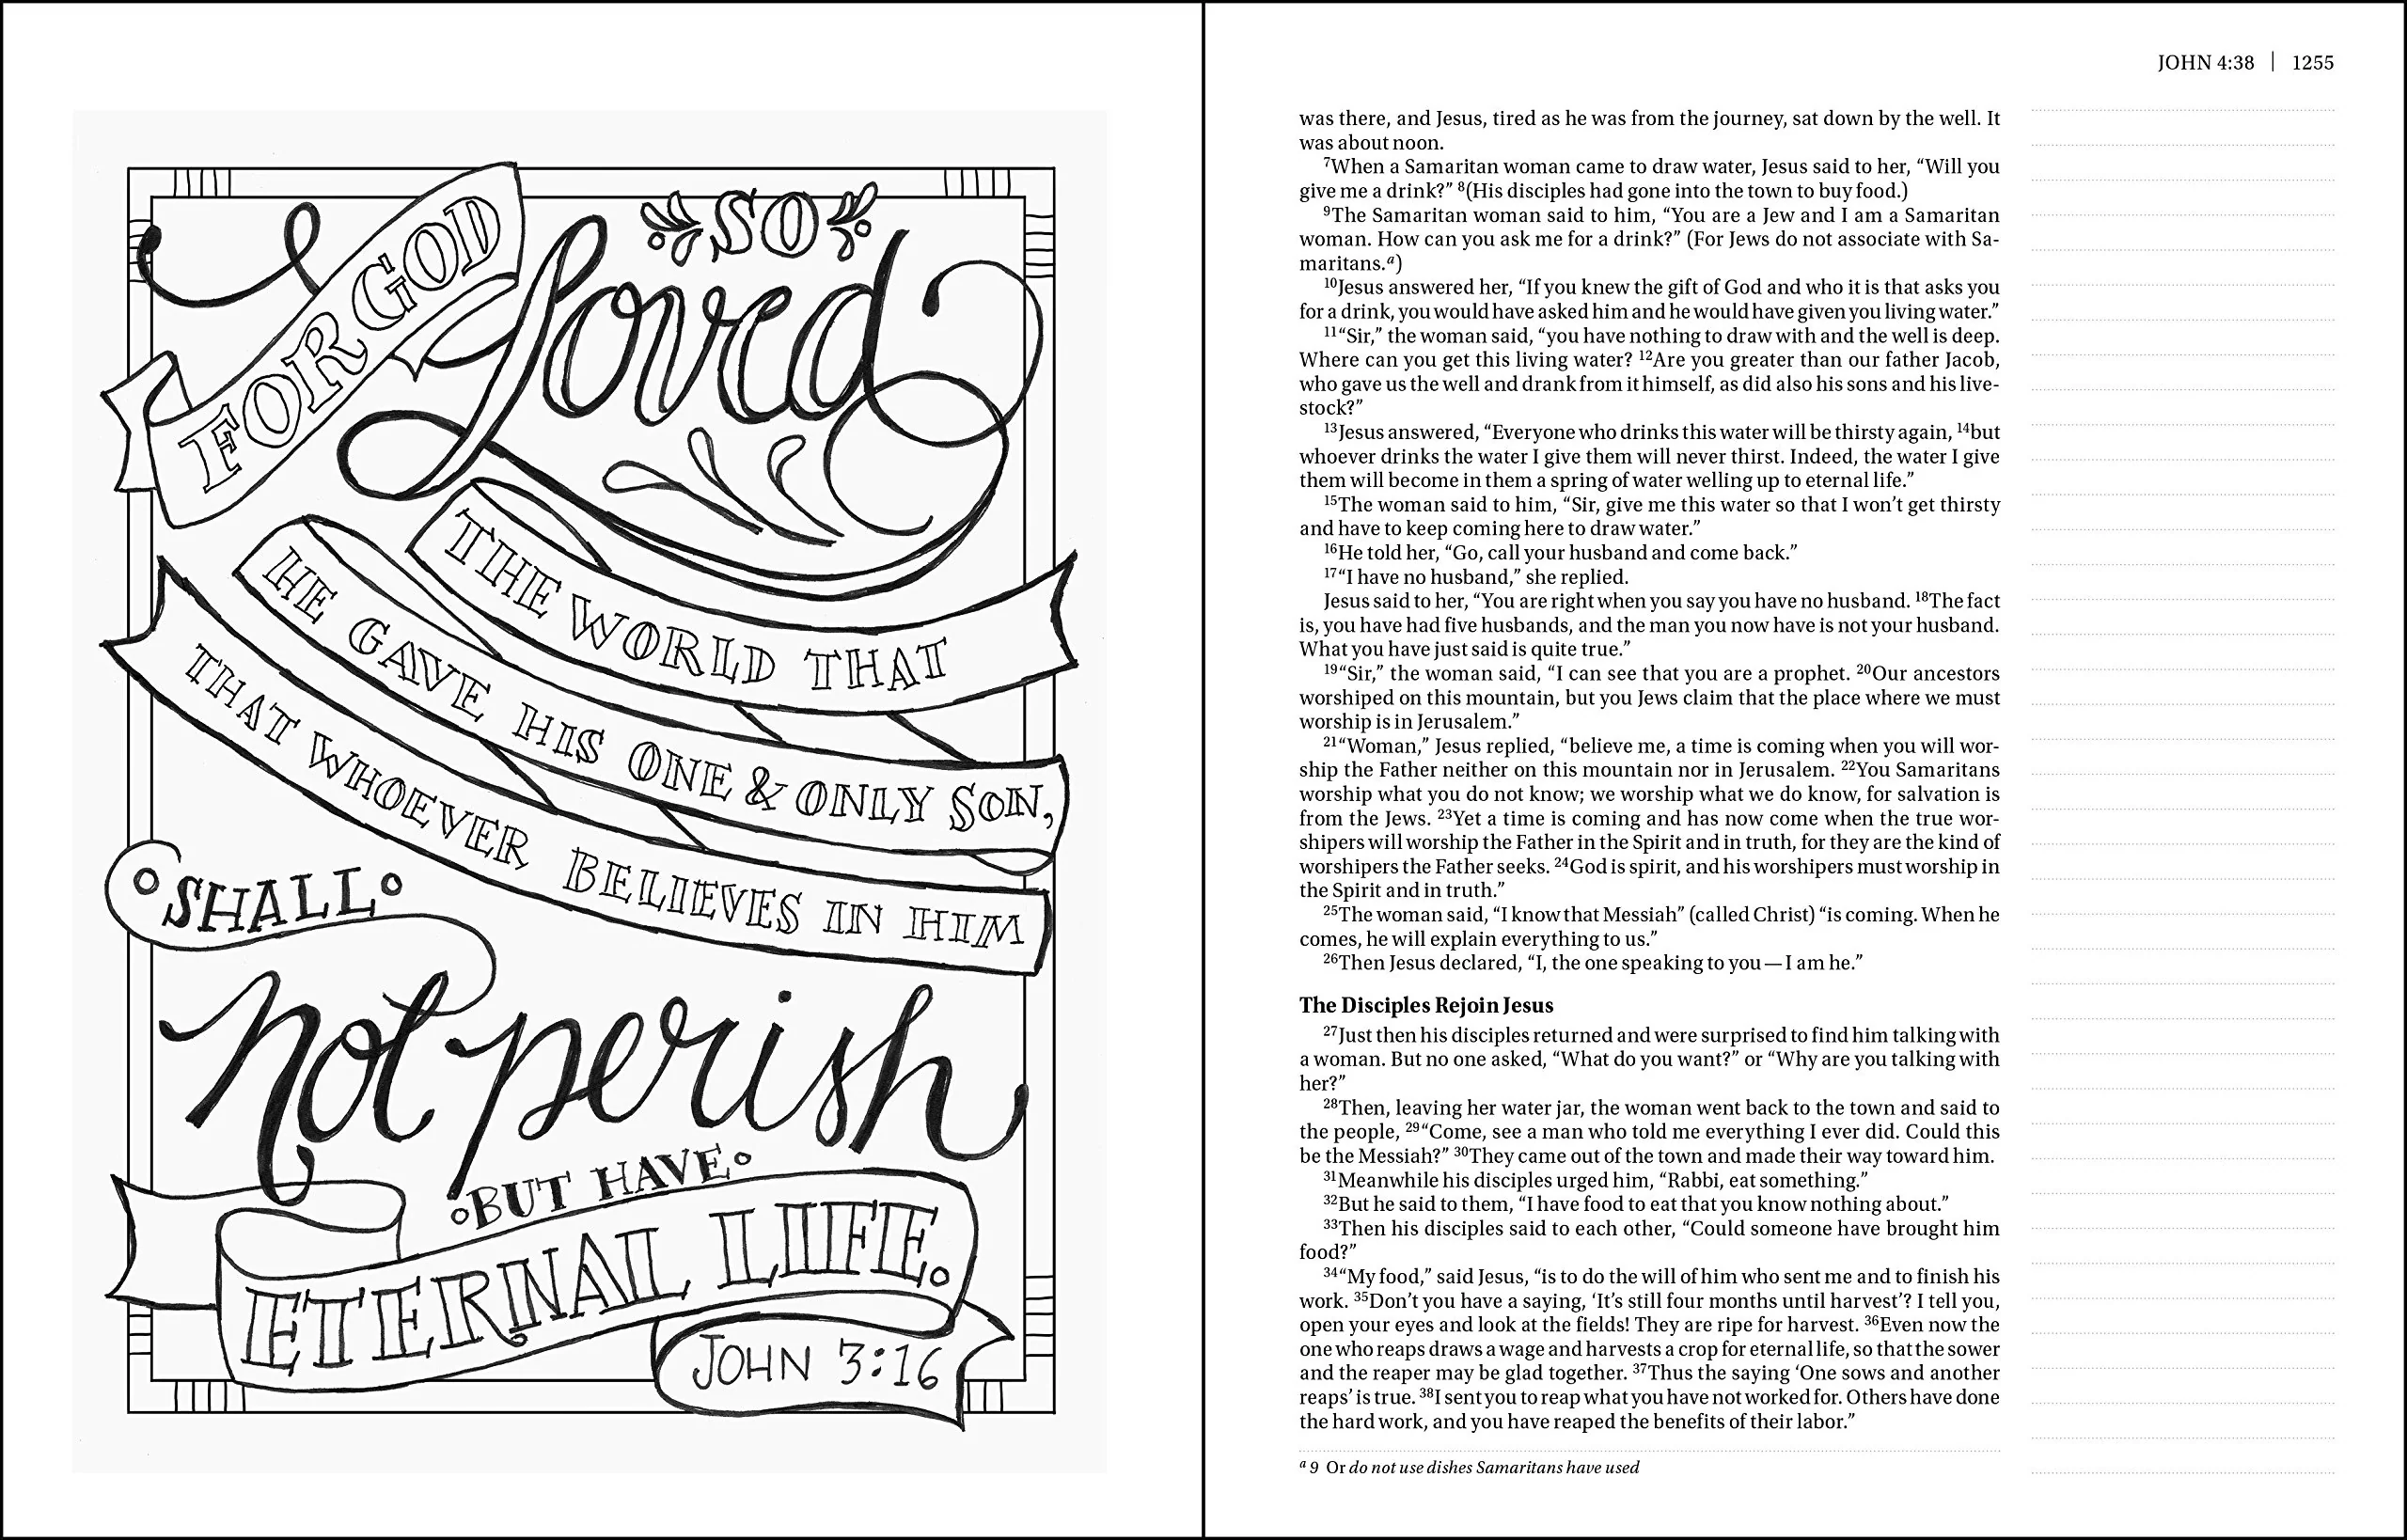 FOR GOD
SO
loved
THE WORLD THAT
HE GAVE HIS ONE & ONLY SON,
THAT WHOEVER BELIEVES IN HIM
SHALL
not perish
BUT HAVE
ETERNAL LIFE.
JOHN 3:16
JOHN 4:38 | 1255
was there, and Jesus, tired as he was from the journey, sat down by the well. It
was about noon.
⁷When a Samaritan woman came to draw water, Jesus said to her, “Will you
give me a drink?” ⁸(His disciples had gone into the town to buy food.)
⁹The Samaritan woman said to him, “You are a Jew and I am a Samaritan
woman. How can you ask me for a drink?” (For Jews do not associate with Sa-
maritans.ᵃ)
¹⁰Jesus answered her, “If you knew the gift of God and who it is that asks you
for a drink, you would have asked him and he would have given you living water.”
¹¹“Sir,” the woman said, “you have nothing to draw with and the well is deep.
Where can you get this living water? ¹²Are you greater than our father Jacob,
who gave us the well and drank from it himself, as did also his sons and his live-
stock?”
¹³Jesus answered, “Everyone who drinks this water will be thirsty again, ¹⁴but
whoever drinks the water I give them will never thirst. Indeed, the water I give
them will become in them a spring of water welling up to eternal life.”
¹⁵The woman said to him, “Sir, give me this water so that I won’t get thirsty
and have to keep coming here to draw water.”
¹⁶He told her, “Go, call your husband and come back.”
¹⁷“I have no husband,” she replied.
Jesus said to her, “You are right when you say you have no husband. ¹⁸The fact
is, you have had five husbands, and the man you now have is not your husband.
What you have just said is quite true.”
¹⁹“Sir,” the woman said, “I can see that you are a prophet. ²⁰Our ancestors
worshiped on this mountain, but you Jews claim that the place where we must
worship is in Jerusalem.”
²¹“Woman,” Jesus replied, “believe me, a time is coming when you will wor-
ship the Father neither on this mountain nor in Jerusalem. ²²You Samaritans
worship what you do not know; we worship what we do know, for salvation is
from the Jews. ²³Yet a time is coming and has now come when the true wor-
shipers will worship the Father in the Spirit and in truth, for they are the kind of
worshipers the Father seeks. ²⁴God is spirit, and his worshipers must worship in
the Spirit and in truth.”
²⁵The woman said, “I know that Messiah” (called Christ) “is coming. When he
comes, he will explain everything to us.”
²⁶Then Jesus declared, “I, the one speaking to you—I am he.”
The Disciples Rejoin Jesus
²⁷Just then his disciples returned and were surprised to find him talking with
a woman. But no one asked, “What do you want?” or “Why are you talking with
her?”
²⁸Then, leaving her water jar, the woman went back to the town and said to
the people, ²⁹“Come, see a man who told me everything I ever did. Could this
be the Messiah?” ³⁰They came out of the town and made their way toward him.
³¹Meanwhile his disciples urged him, “Rabbi, eat something.”
³²But he said to them, “I have food to eat that you know nothing about.”
³³Then his disciples said to each other, “Could someone have brought him
food?”
³⁴“My food,” said Jesus, “is to do the will of him who sent me and to finish his
work. ³⁵Don’t you have a saying, ‘It’s still four months until harvest’? I tell you,
open your eyes and look at the fields! They are ripe for harvest. ³⁶Even now the
one who reaps draws a wage and harvests a crop for eternal life, so that the sower
and the reaper may be glad together. ³⁷Thus the saying ‘One sows and another
reaps’ is true. ³⁸I sent you to reap what you have not worked for. Others have done
the hard work, and you have reaped the benefits of their labor.”
ᵃ 9 Or do not use dishes Samaritans have used